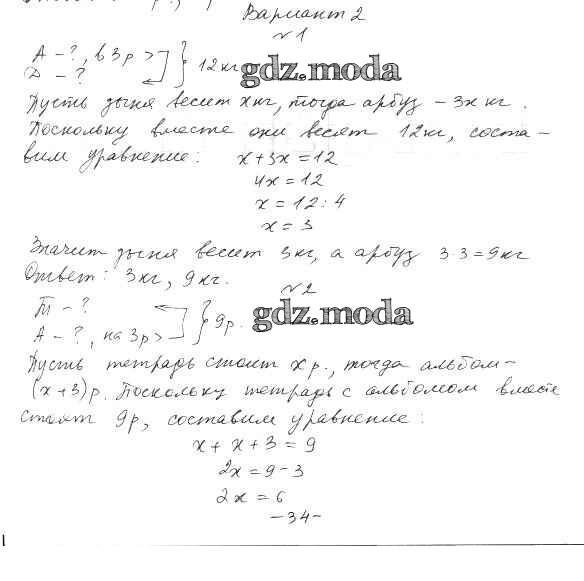 Вариант 2
№1
А - ?, в 3 р > } 12 кг
Д - ?
gdz.moda
Пусть дыня весит x кг, тогда арбуз - 3x кг.
Поскольку вместе они весят 12 кг, соста-
вим уравнение: x + 3x = 12
4x = 12
x = 12 : 4
x = 3
Значит дыня весит 3 кг, а арбуз 3·3 = 9 кг
Ответ: 3 кг, 9 кг.
№2
Т - ?
А - ?, на 3 р > } 9 р.
gdz.moda
Пусть тетрадь стоит x р., тогда альбом -
(x + 3) р. Поскольку тетрадь с альбомом вместе
стоят 9 р, составим уравнение:
x + x + 3 = 9
2x = 9 - 3
2x = 6
- 34 -